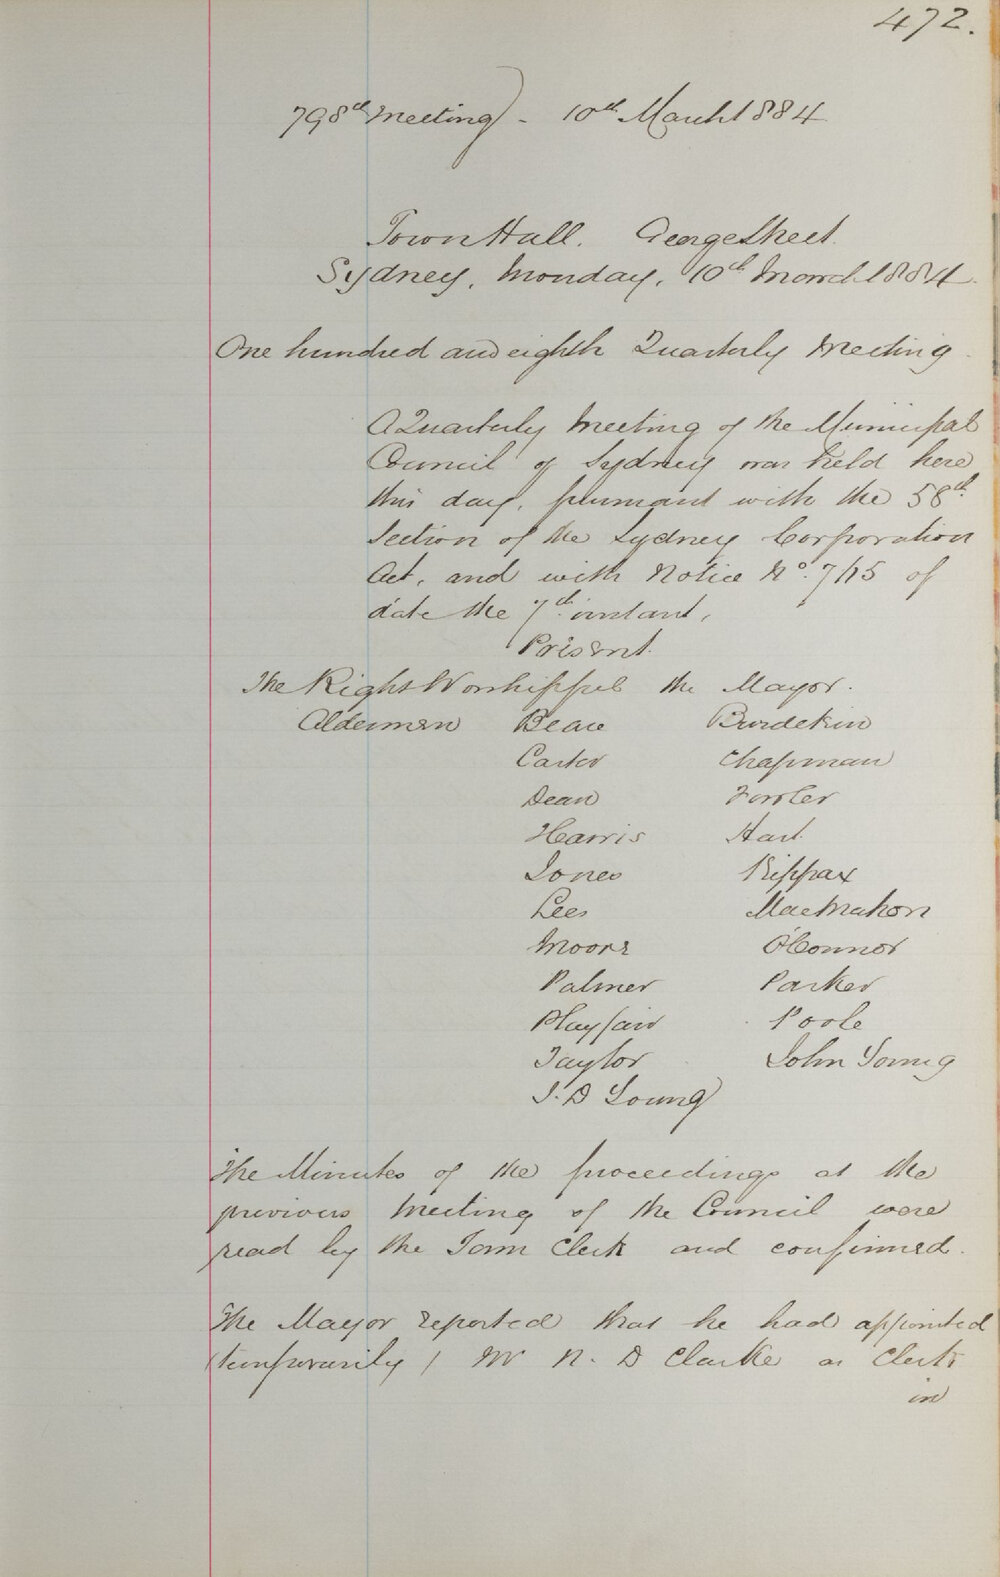 472.
798th Meeting) - 10th March 1884
Town Hall. George Street.
Sydney, Monday, 10th March 1884.
One hundred and eighth Quarterly Meeting.
A Quarterly Meeting of the Municipal
Council of Sydney was held here
this day, pursuant with the 58th
Section of the Sydney Corporation
Act, and with Notice No. 7/15 of
date the 7th instant,
Present.
The Right Worshipful the Mayor.
Aldermen Beare Burdekin
Carter Chapman
Dean Fowler
Harris Hart
Jones Kippax
Lees MacMahon
Moore O'Connor
Palmer Parker
Playfair Poole
Taylor John Young
J. D Young
The Minutes of the proceedings at the
previous Meeting of the Council were
read by the Town Clerk and confirmed.
The Mayor reported that he had appointed
(temporarily) Mr N. D Clarke as Clerk
in